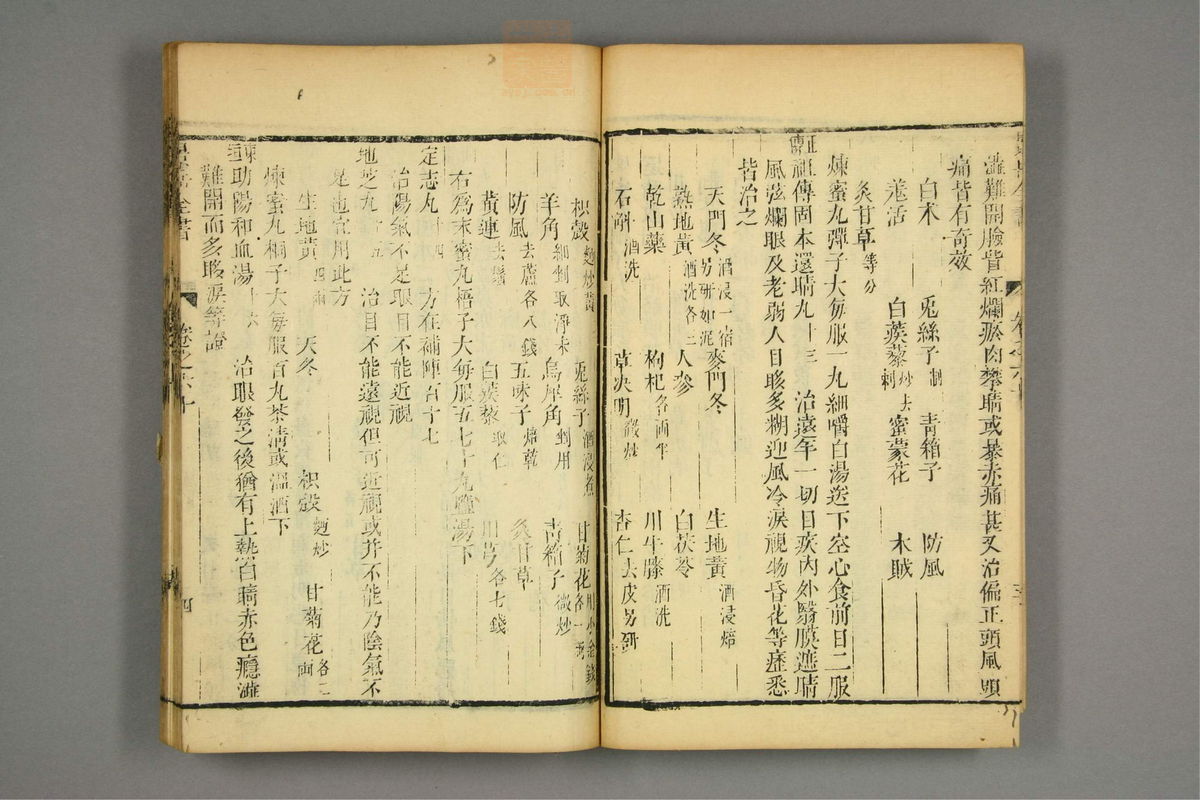 澁難開臉眥紅爛瘀肉攀睛或暴赤痛甚又治偏正頭風頭
痛皆有奇效
白木 兎絲子制 青箱子 防風
羗活 白蒺藜炒去刺 蜜蒙花 木賊
炙甘草等分
煉蜜丸彈子大每服一丸細嚼白湯送下空心食前日二服
祖傳固本還睛丸十三 治遠年一切目疾內外翳膜遮睛
風弦爛眼及老弱人目眵多糊迎風冷淚視物昏花等症悉
皆治之
天門冬酒浸一宿另研如泥 麥門冬 生地黃酒浸焙
熟地黃酒洗各三 人參 白茯苓
乾山藥 枸杞各両半 川牛膝酒洗
石斛酒洗 草决明微炒 杏仁去皮另研
枳殼麪炒黃 兎絲子酒浸煮 甘菊花
羊角細剉取淨末 烏犀角剉用 青箱子微炒
防風去蘆各八錢 五味子焙乾 炙甘草
黃連去鬚 白蒺藜取仁 川芎各七錢
右為末蜜丸梧子大每服五七十丸鹽湯下
定志丸十四 方在補陣百十七
治陽氣不足眼目不能近視
地芝丸十五 治目不能遠視但可近視或并不能乃陰氣不
足也宜用此方
生地黃四兩 天冬 枳殼麪炒 甘菊花各二両
煉蜜丸桐子大每服百丸茶清或溫酒下
東垣助陽和血湯十六 治眼發之後猶有上熱白睛赤色癮澁
難開而多眵淚等證
卷之六十
四